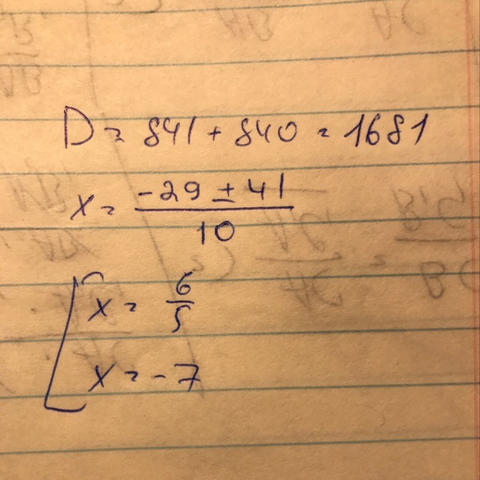 D = 841 + 840 = 1681
x = (-29 ± 41)/10
x = 6/5
x = -7